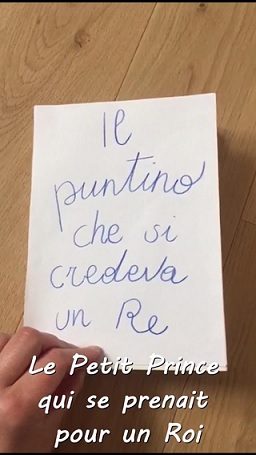 Il
puntino
che si
credeva
un Re
Le Petit Prince
qui se prenait
pour un Roi